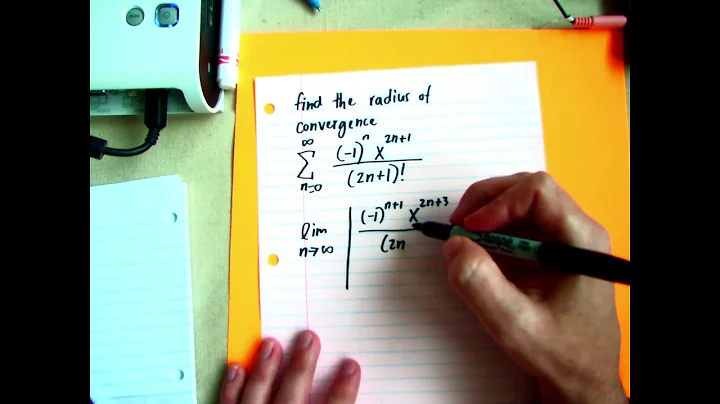 find the radius of
convergence
∞
∑ (-1)^n x^{2n+1}
n=0 (2n+1)!
lim | (-1)^{n+1} x^{2n+3}
n→∞ (2n